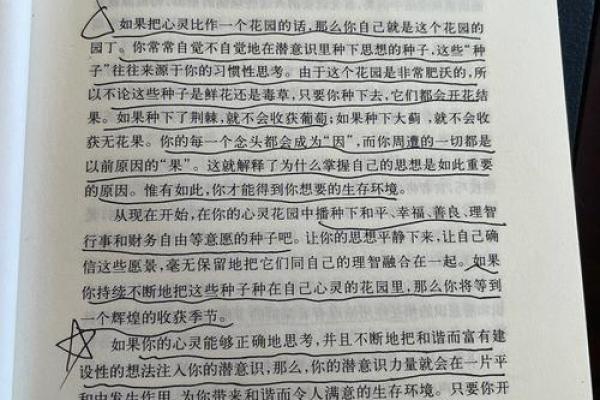 如果把心灵比作一个花园的话,那么你自己就是这个花园的
园丁。你常常自觉不自觉地在潜意识里种下思想的种子,这些“种
子”往往来源于你的习惯性思考。由于这个花园是非常肥沃的,所
以不论这些种子是鲜花还是毒草,只要你种下去,它们都会开花结
果。如果种下了荆棘,就不会收获葡萄;如果种下大蓟,就不会收
获无花果。你的每一个念头都会成为“因”,而你周遭的一切都是
以前原因的“果”。这就解释了为什么掌握自己的思想是如此重要
的原因。惟有如此,你才能得到你想要的生存环境。
从现在开始,在你的心灵花园中播种下和平、幸福、善良、理智
行事和财务自由等意愿的种子吧。让你的思想平静下来,让自己确
信这些愿景,毫无保留地把它们同自己的理智融合在一起。如果
你持续不断地把这些种子种在自己心灵的花园里,那么你将等到
一个辉煌的收获季节。
如果你的心灵能够正确地思考,并且不断地把和谐而富有建
设性的想法注入你的潜意识,那么,你的潜意识力量就会在一片平
和中发生作用,为你带来和谐而令人满意的生存环境。只要你开